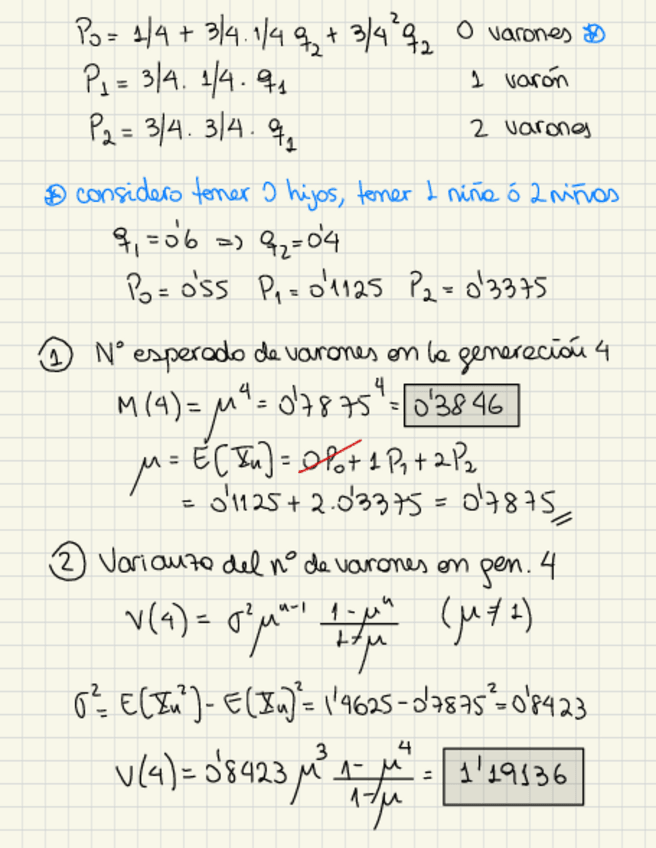 P₀ = 1/4 + 3/4 · 1/4 q₂ + 3/4² q₂ 0 varones ⊛
P₁ = 3/4 · 1/4 · q₁ 1 varón
P₂ = 3/4 · 3/4 · q₁ 2 varones
⊛ considero tener 0 hijos, tener 1 niña ó 2 niñas
q₁ = 0'6 => q₂ = 0'4
P₀ = 0'55 P₁ = 0'1125 P₂ = 0'3375
① Nº esperado de varones en la generación 4
M(4) = μ⁴ = 0'7875⁴ = 0'3846
μ = E[Xn] = 0P₀ + 1P₁ + 2P₂
= 0'1125 + 2·0'3375 = 0'7875
② Varianza del nº de varones en gen. 4
V(4) = σ² μⁿ⁻¹ (1-μⁿ)/(1-μ) (μ ≠ 1)
σ² = E[Xn²] - E[Xn]² = 1'4625 - 0'7875² = 0'8423
V(4) = 0'8423 μ³ (1-μ⁴)/(1-μ) = 1'19136